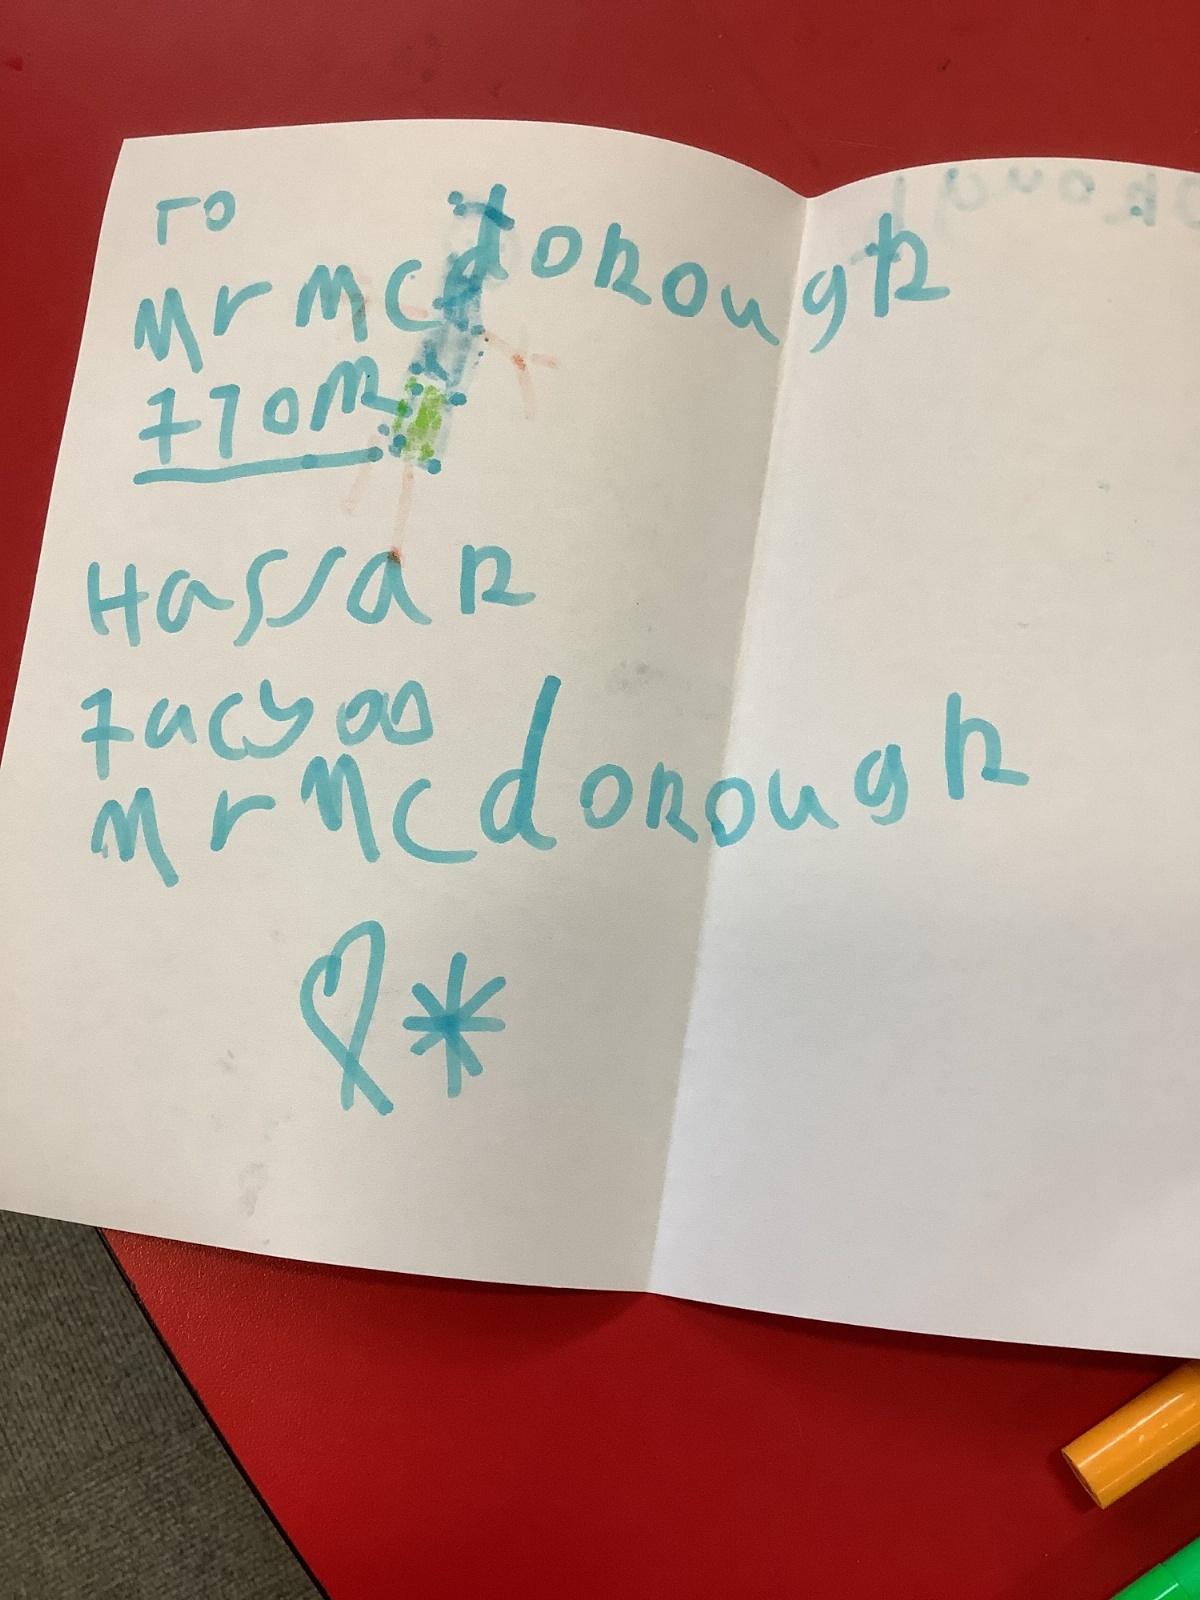 TO
Mr Mcdonough
From
Hassan
Facyoo
Mr Mcdonough